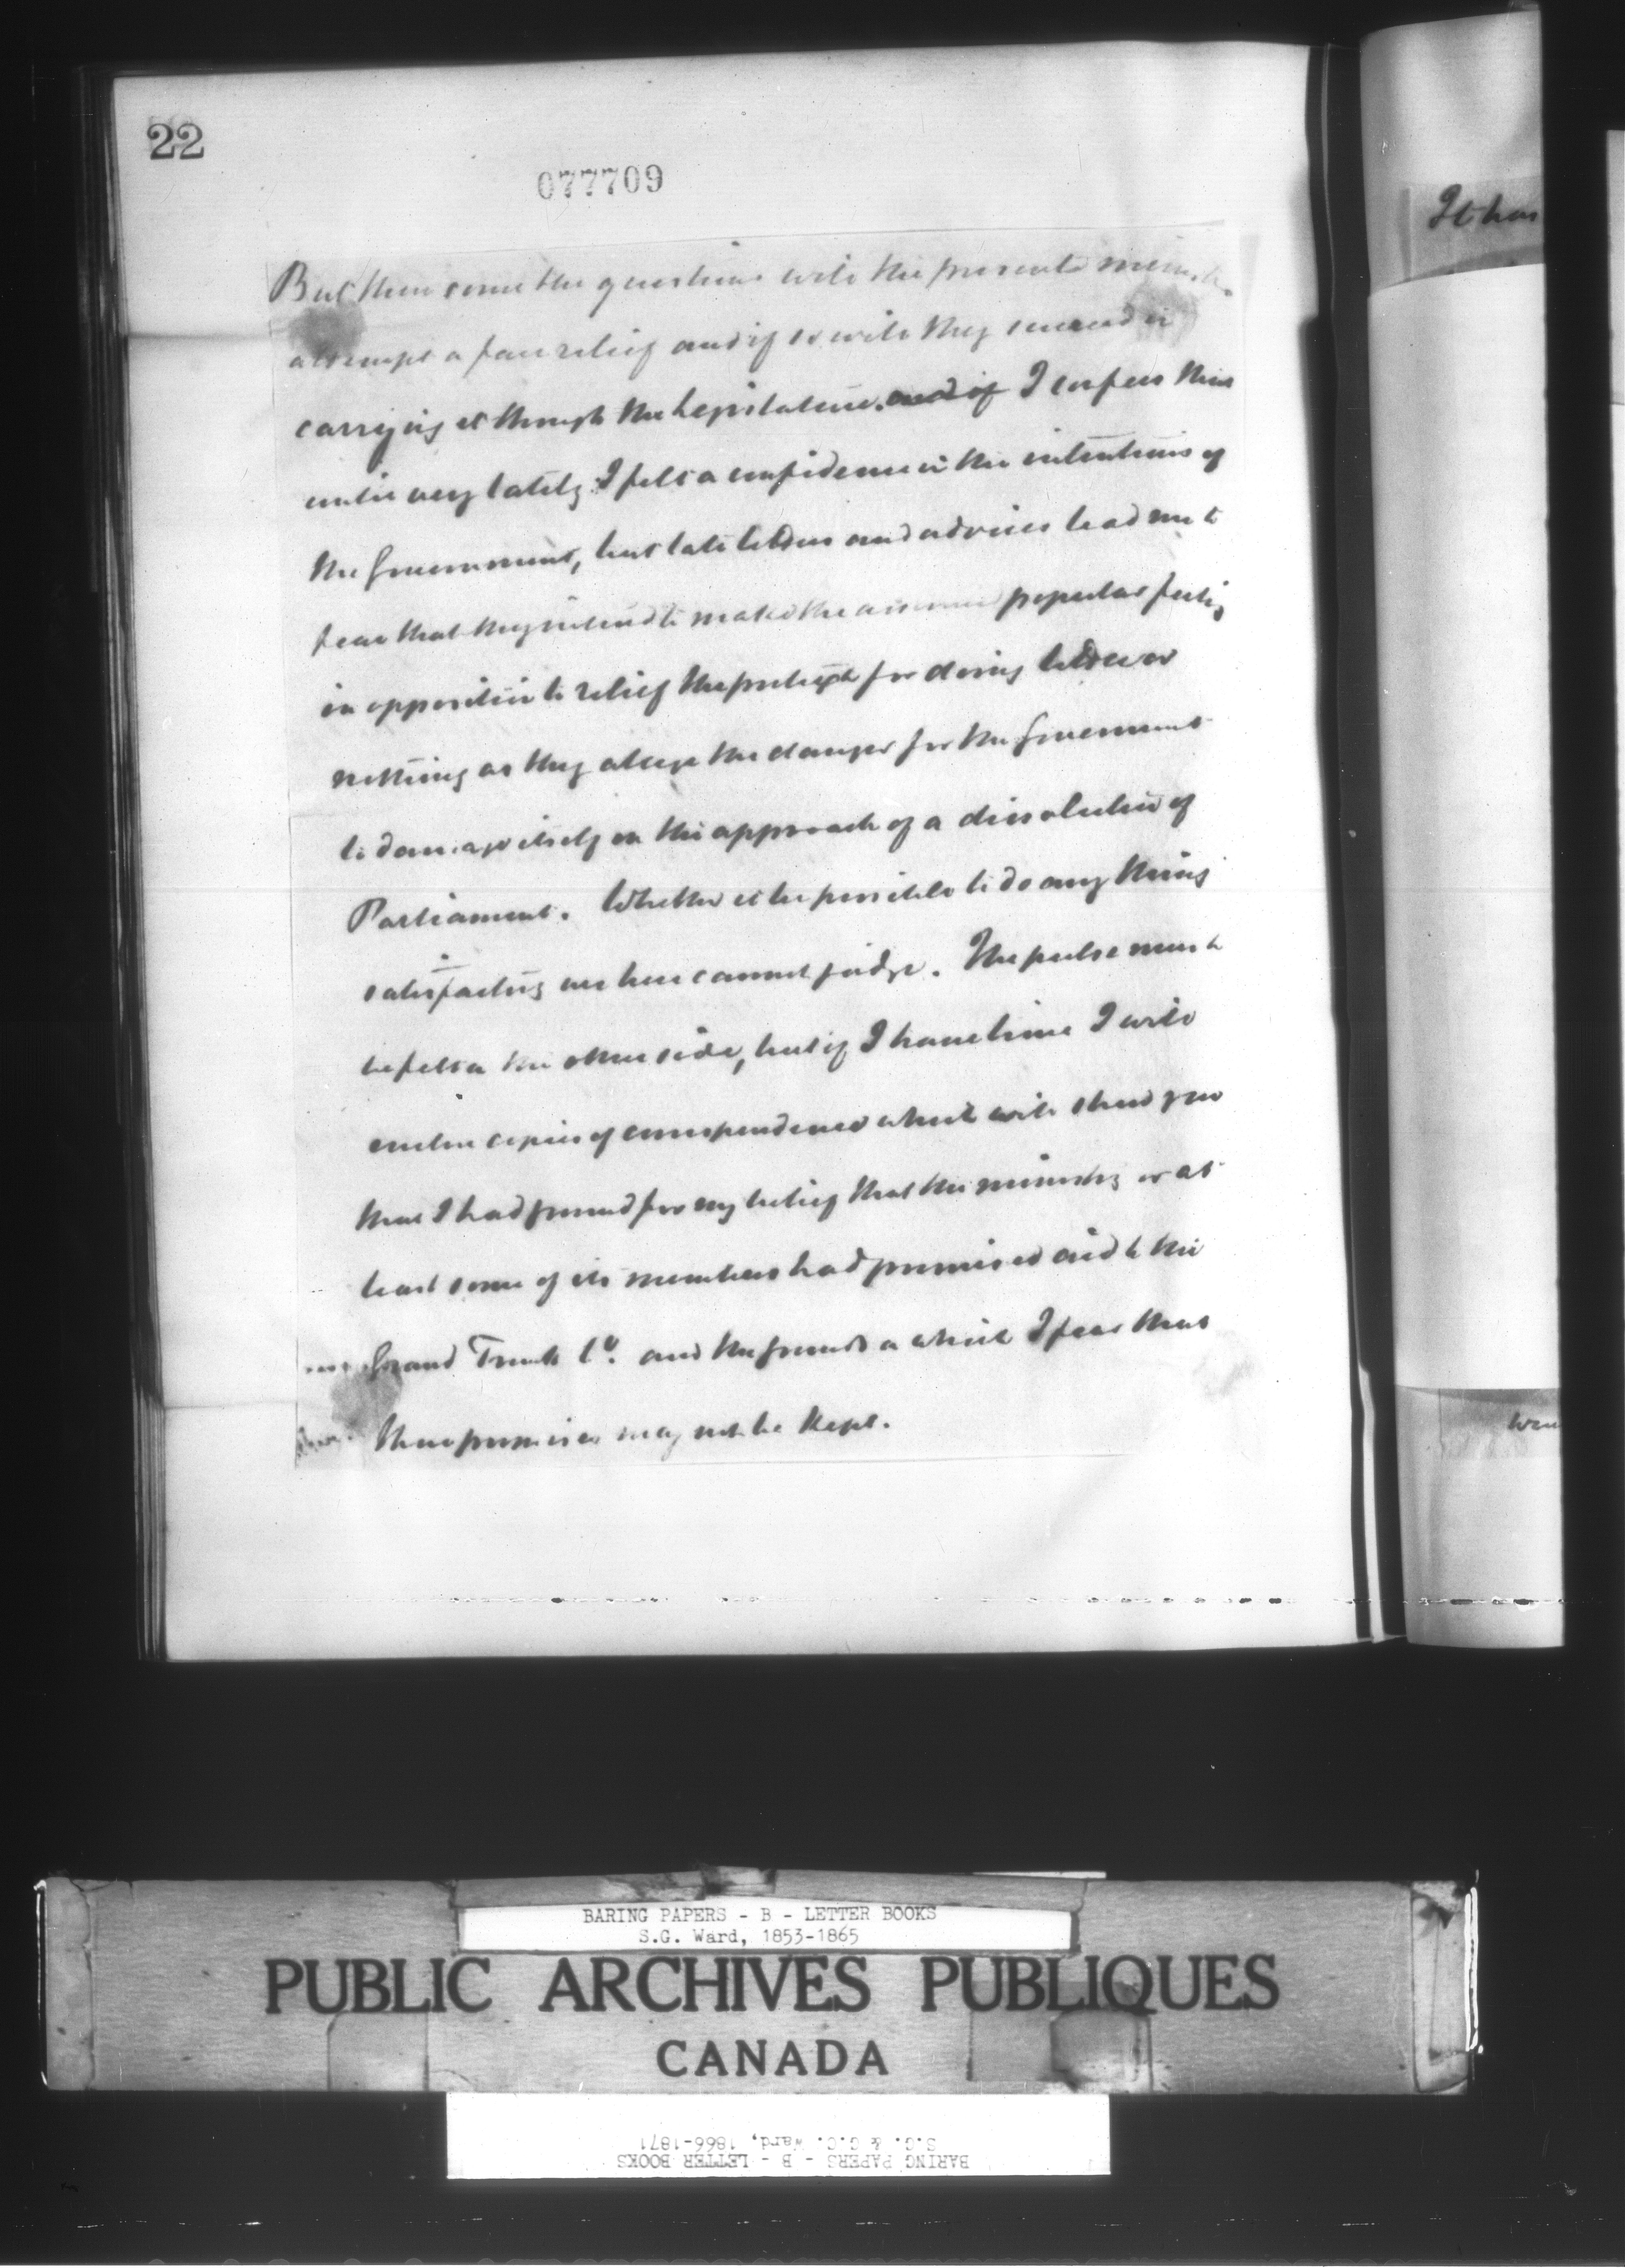 22
077709
But then come the questions will the present ministers
attempt a fair relief and if so will they succeed in
carrying it through the Legislature. and if I confess that
until very lately I felt a confidence in the intentions of
the Government, but late letters and advices lead me to
fear that they intend to make the popular feeling
in opposition to relief the pretext for doing little or
nothing as they allege the danger for the Government
to damage itself on the approach of a dissolution of
Parliament. Whether it be possible to do any thing
satisfactory we here cannot judge. The pulse must
be felt on the other side, but if I have time I will
enclose copies of correspondence which will shew you
that I had ground for my belief that the ministry or at
least some of its members had promised aid to the
Grand Trunk Co. and the grounds on which I fear that
these promises may not be kept.
It has
BARING PAPERS - B - LETTER BOOKS
S.G. Ward, 1853-1865
PUBLIC ARCHIVES PUBLIQUES
CANADA
BARING PAPERS - B - LETTER BOOKS
S.G. & G.C. Ward, 1866-1871